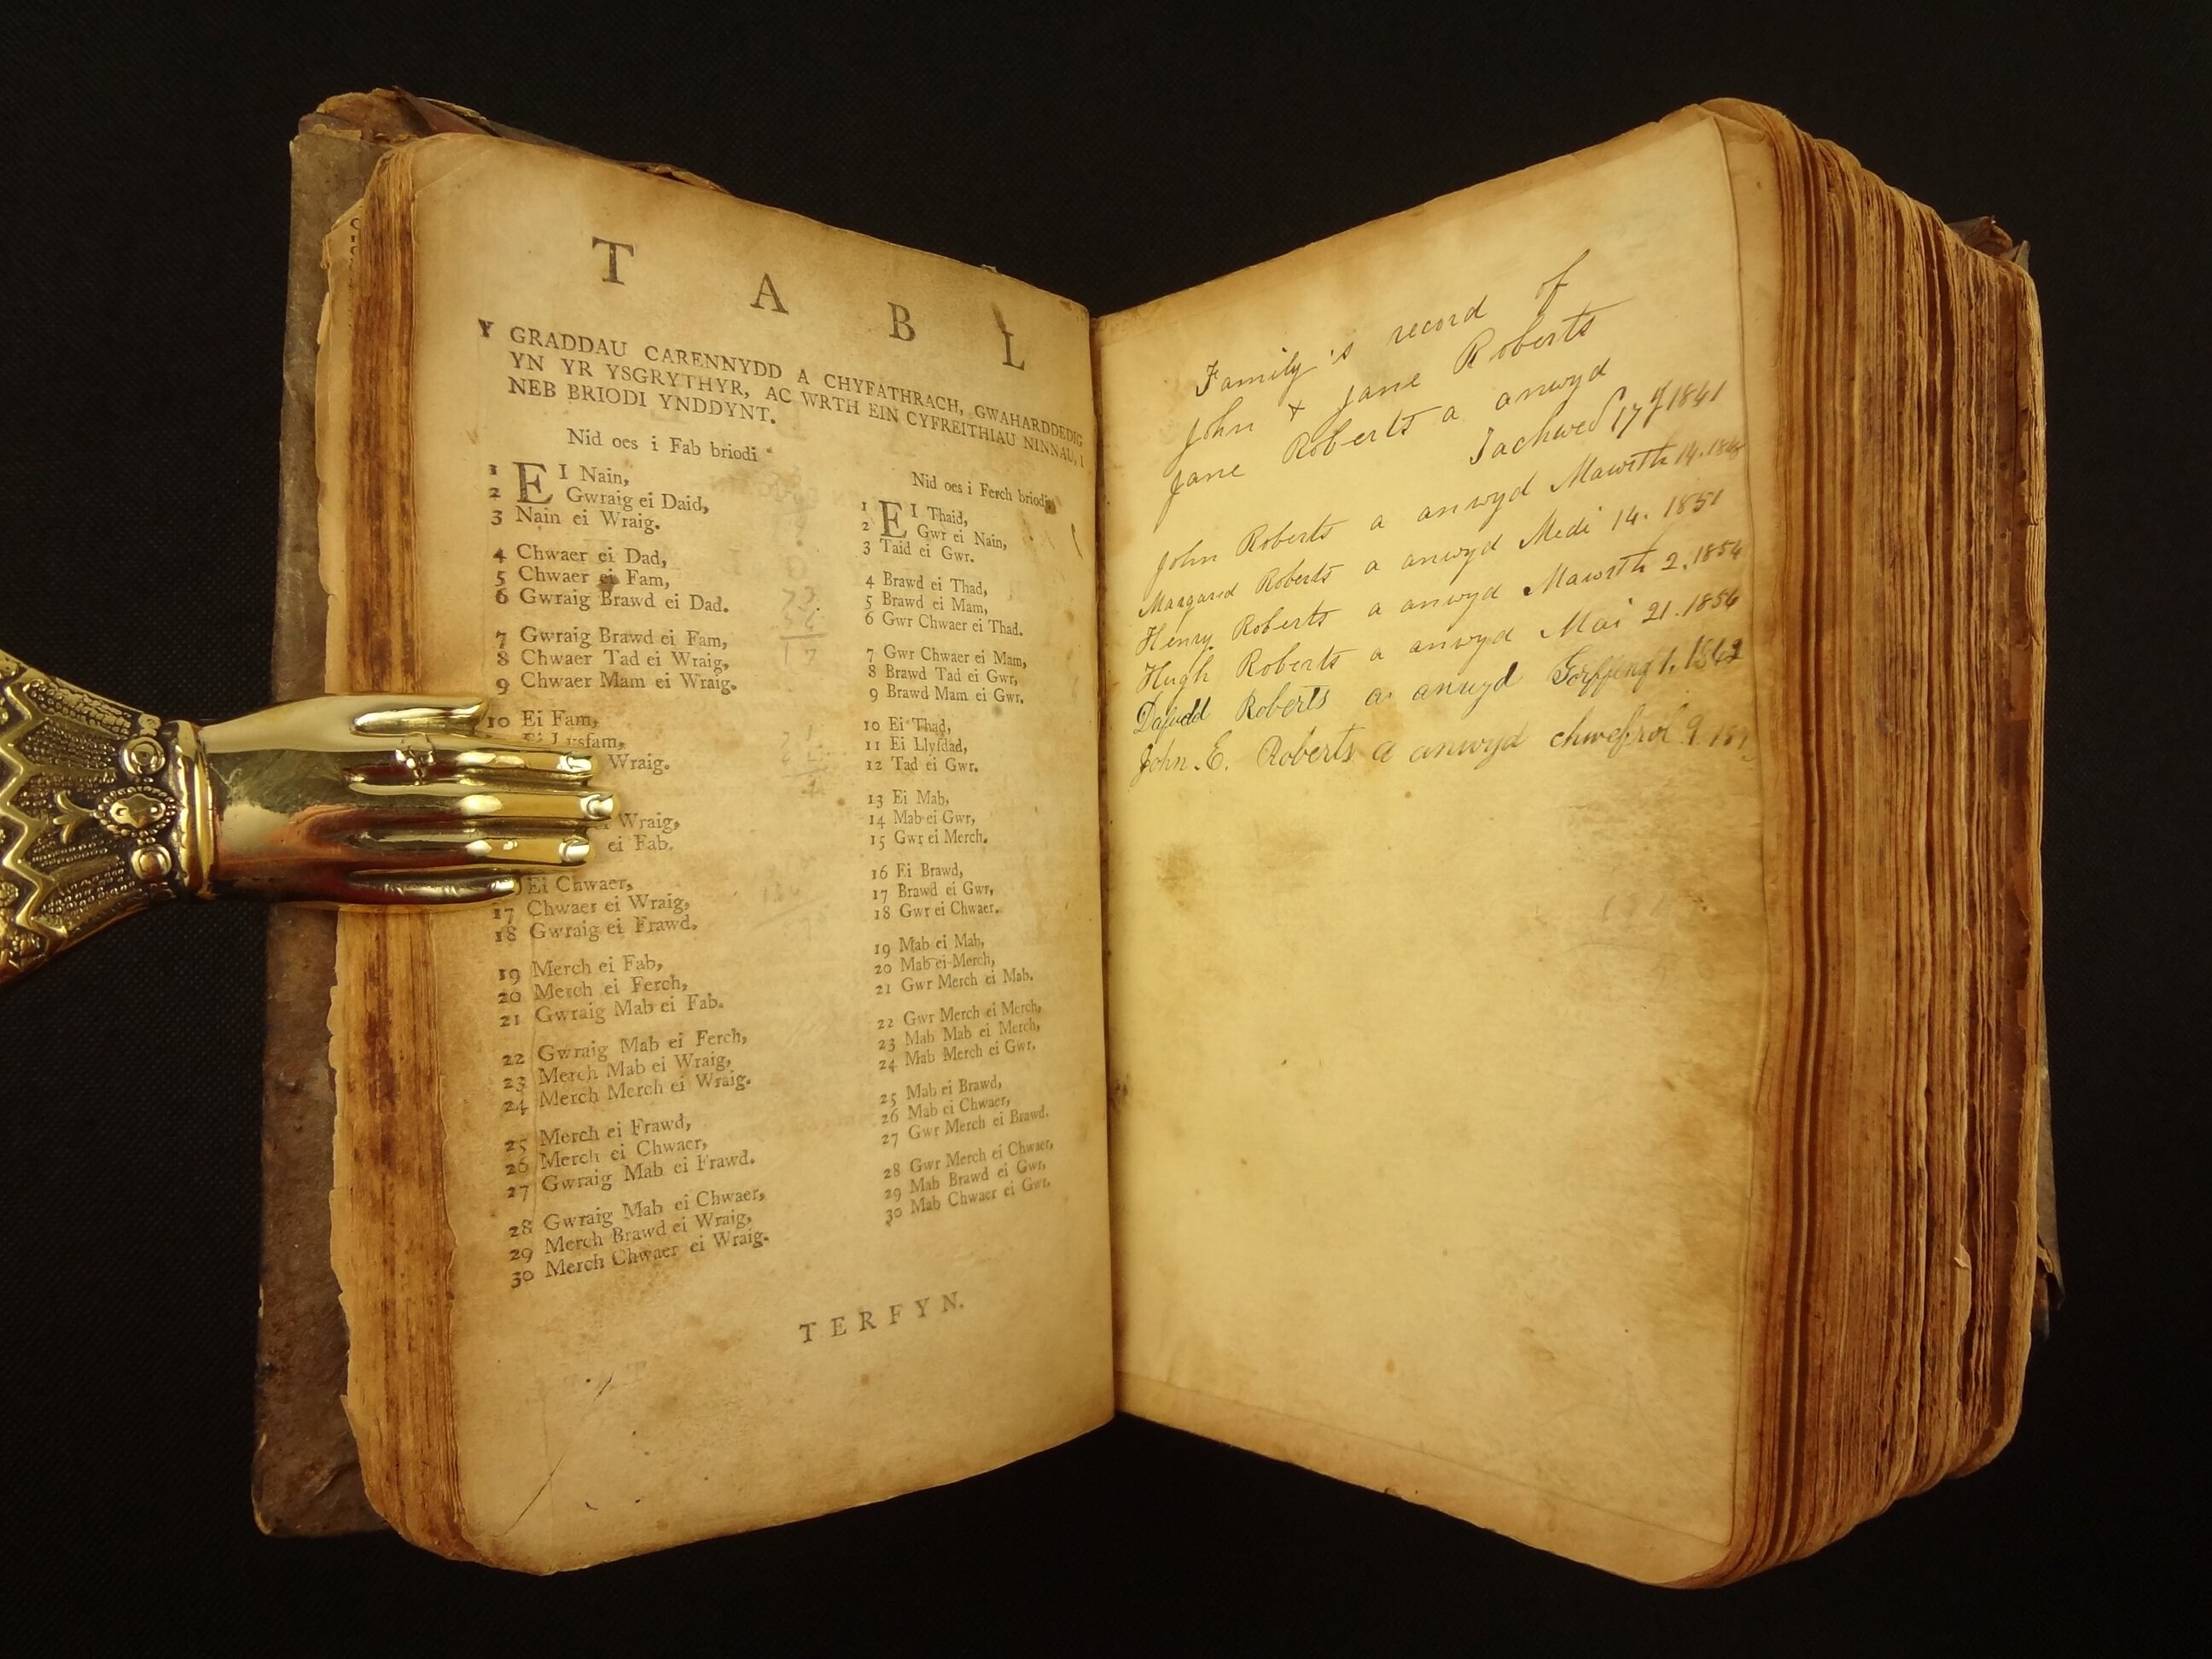 T A B L
Y GRADDAU CARENNYDD A CHYFATHRACH, GWAHARDDEDIG
YN YR YSGRYTHYR, AC WRTH EIN CYFREITHIAU NINNAU, I
NEB BRIODI YNDDYNT.
Nid oes i Fab briodi
1 EI Nain,
2 Gwraig ei Daid,
3 Nain ei Wraig.
4 Chwaer ei Dad,
5 Chwaer ei Fam,
6 Gwraig Brawd ei Dad.
7 Gwraig Brawd ei Fam,
8 Chwaer Tad ei Wraig,
9 Chwaer Mam ei Wraig.
10 Ei Fam,
Ei Lysfam,
Wraig.
Wraig,
ei Fab.
Ei Chwaer,
17 Chwaer ei Wraig,
18 Gwraig ei Frawd.
19 Merch ei Fab,
20 Merch ei Ferch,
21 Gwraig Mab ei Fab.
22 Gwraig Mab ei Ferch,
23 Merch Mab ei Wraig,
24 Merch Merch ei Wraig.
25 Merch ei Frawd,
26 Merch ei Chwaer,
27 Gwraig Mab ei Frawd.
28 Gwraig Mab ei Chwaer,
29 Merch Brawd ei Wraig,
30 Merch Chwaer ei Wraig.
Nid oes i Ferch briodi
1 EI Thaid,
2 Gwr ei Nain,
3 Taid ei Gwr.
4 Brawd ei Thad,
5 Brawd ei Mam,
6 Gwr Chwaer ei Thad.
7 Gwr Chwaer ei Mam,
8 Brawd Tad ei Gwr,
9 Brawd Mam ei Gwr.
10 Ei Thad,
11 Ei Llysdad,
12 Tad ei Gwr.
13 Ei Mab,
14 Mab ei Gwr,
15 Gwr ei Merch.
16 Ei Brawd,
17 Brawd ei Gwr,
18 Gwr ei Chwaer.
19 Mab ei Mab,
20 Mab ei Merch,
21 Gwr Merch ei Mab.
22 Gwr Merch ei Merch,
23 Mab Mab ei Merch,
24 Mab Merch ei Gwr.
25 Mab ei Brawd,
26 Mab ei Chwaer,
27 Gwr Merch ei Brawd.
28 Gwr Merch ei Chwaer,
29 Mab Brawd ei Gwr,
30 Mab Chwaer ei Gwr.
TERFYN.
Family's record of
John + Jane Roberts
Jane Roberts a anwyd
Tachwed 17 1841
John Roberts a anwyd Mawrth 14.
Margared Roberts a anwyd Medi 14. 1851
Henry Roberts a anwyd Mawrth 2. 1854
Hugh Roberts a anwyd Mai 21. 1856
Dafudd Roberts a anwyd 1.
John. E. Roberts a anwyd chwefrol 9